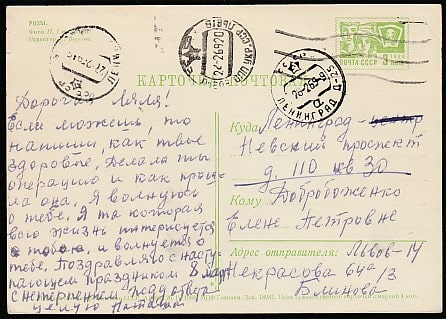 РОЗЫ.
КАРТОЧКА ПОЧТОВАЯ
ПОЧТА СССР
ЛЕНИНГРАД
Дорогая Ляля!
Если можешь, то
напиши, как твое
здоровье. Делала ты
операцию и как прошла
она. Я волнуюсь
о тебе. Я та которая
всю жизнь интересуется
тобою, и волнуется о
тебе. Поздравляю с наступающем
праздником 8 март
с нетерпением жду ответа
целую Наташа
Куда Ленинград-центр
Невский проспект
д. 110 кв 30
Кому Добробоженко
Елене Петровне
Адрес отправителя: Львов-14
Некрасова 64а/13
Блинова